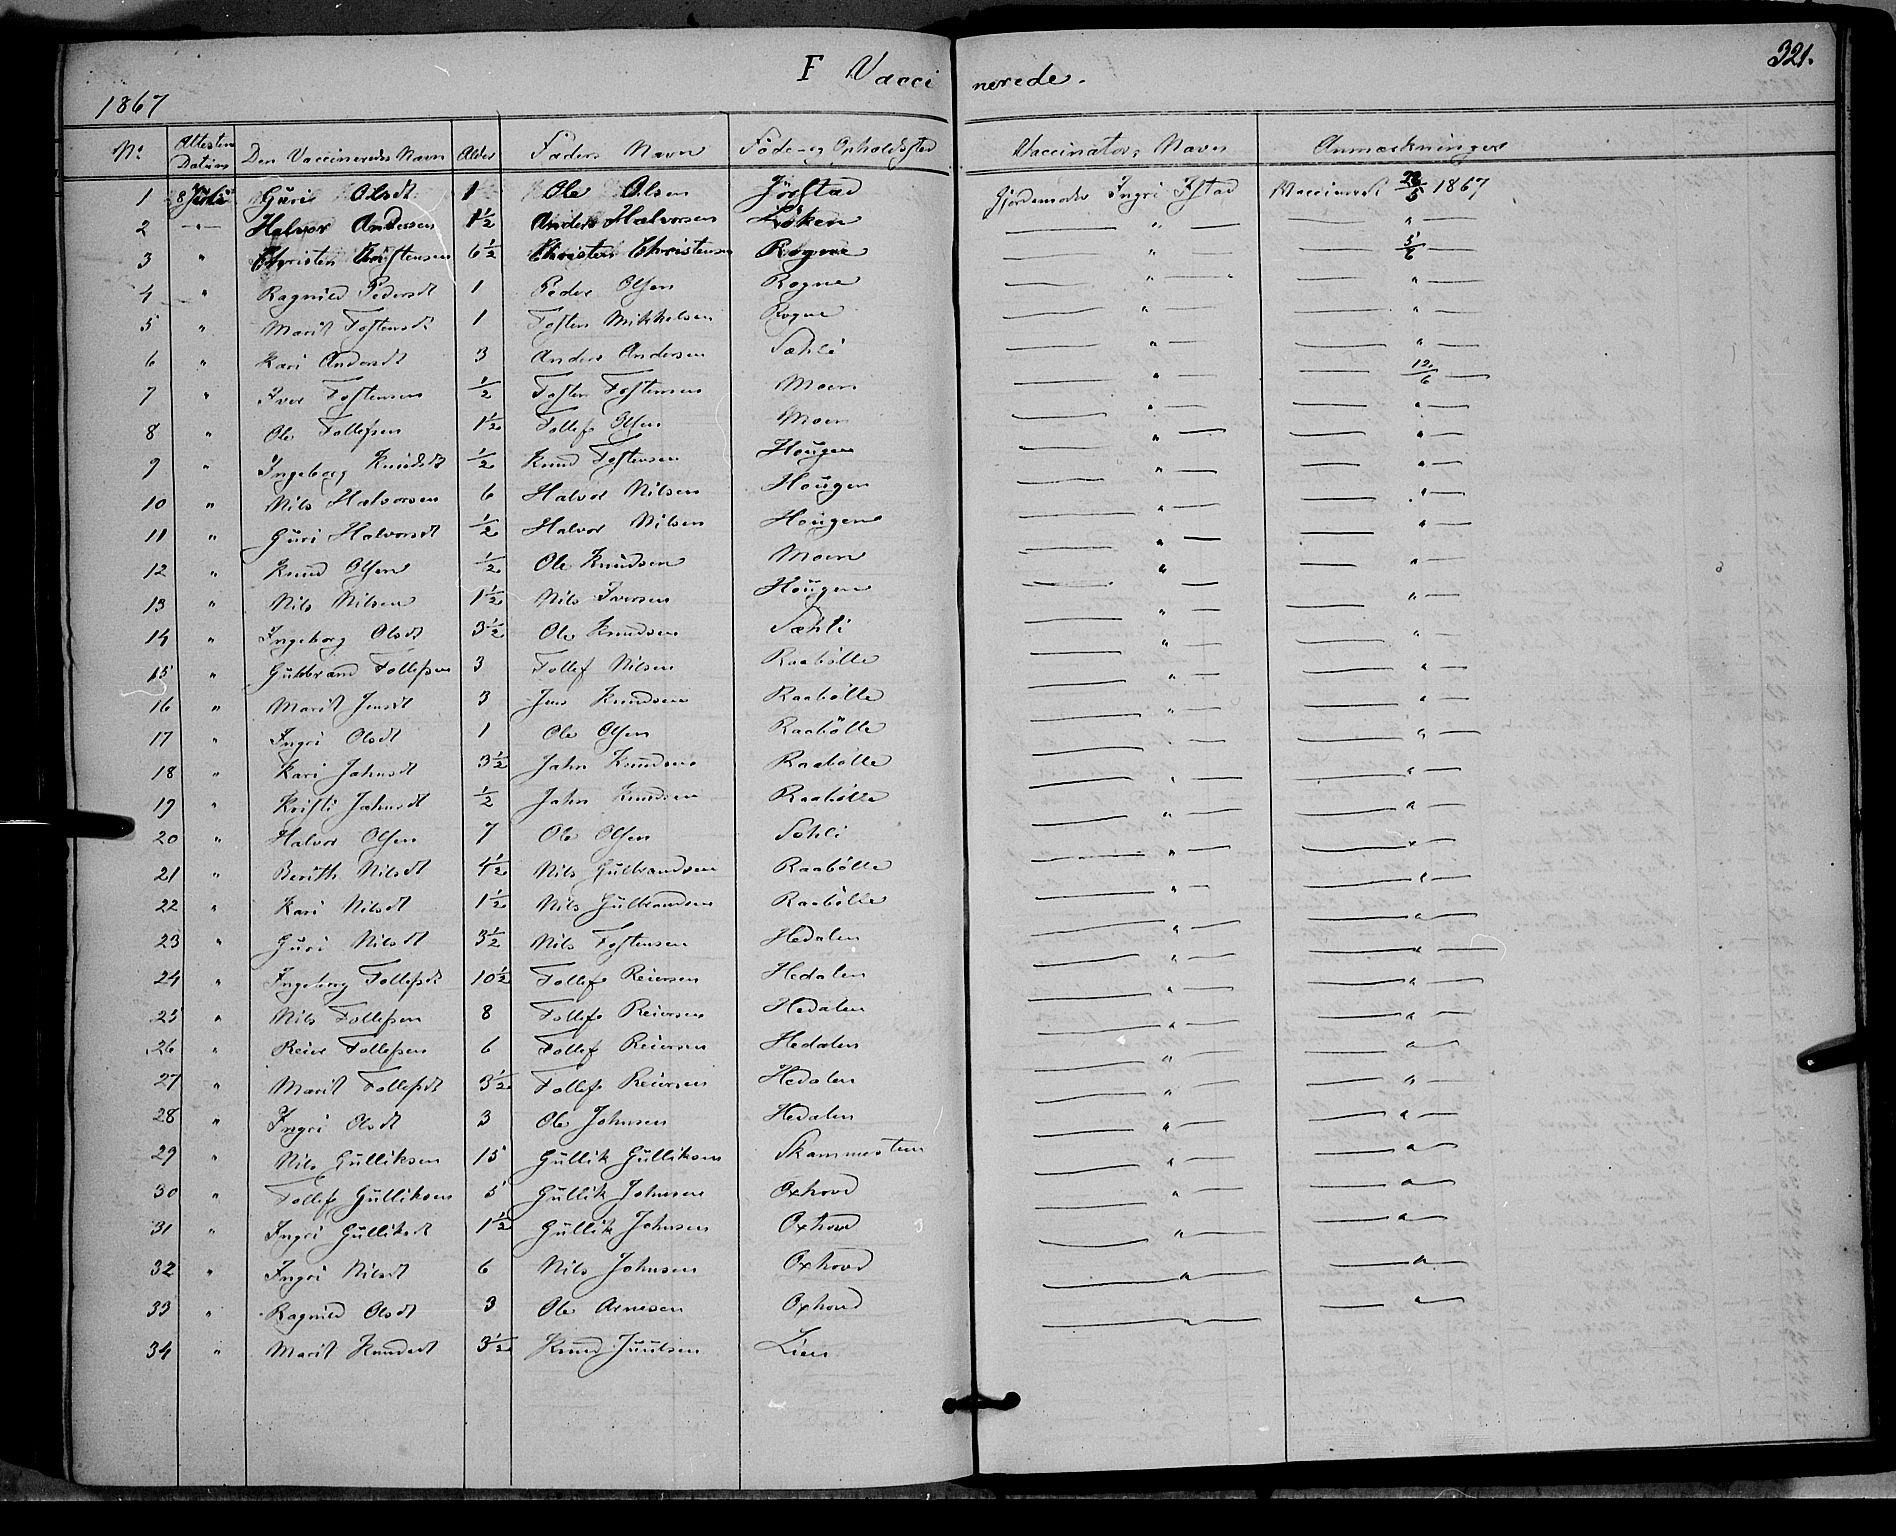 321.
F Vaccinerede.
1867
No Attestens Datum Den Vaccineredes Navn Alder Faders Navn Føde- og Opholdssted Vaccinators Navn Anmærkninger
1 8 Juli Guri Olsdt 1 Ole Olsen Jørstad Gjordemoder Ingri Istad Vaccineret 28/5 1867
2 — " — Halvor Andersen 1½ Anders Halvorsen Løken — " — — " —
3 " Christen Christensen 6½ Christen Christensen Rogne — " — — 5/6 —
4 " Ragnild Pedersdt 1 Peder Olsen Rogne — " — — " —
5 " Marit Tostensdt 1 Tosten Mikkelsen Rogne — " — — " —
6 " Kari Andersdt 3 Anders Andersen Sæhli — " — — " —
7 " Iver Tostensen ½ Tosten Tostensen Moen — " — — 12/6 —
8 " Ole Tollefsen 1½ Tollef Olsen Moen — " — — " —
9 " Ingeborg Knudsdt ½ Knud Tostensen Hougen — " — — " —
10 " Nils Halvorsen 6 Halvor Nilsen Hougen — " — — " —
11 " Guri Halvorsdt ½ Halvor Nilsen Hougen — " — — " —
12 " Knud Olsen ½ Ole Knudsen Moen — " — — " —
13 " Nils Nilsen 1½ Nils Iversen Hougen — " — — " —
14 " Ingeborg Olsdt 3½ Ole Knudsen Sæhli — " — — " —
15 " Gulbrand Tollefsen 3 Tollef Nilsen Raabølle — " — — " —
16 " Marit Jensdt 3 Jens Knudsen Raabølle — " — — " —
17 " Ingri Olsdt 1 Ole Olsen Raabølle — " — — " —
18 " Kari Jahnsdt 3½ Jahn Knudsen Raabølle — " — — " —
19 " Kristi Jahnsdt ½ Jahn Knudsen Raabølle — " — — " —
20 " Halvor Olsen 7 Ole Olsen Sæhli — " — — " —
21 " Berith Nilsdt 4½ Nils Gulbrandsen Raabølle — " — — " —
22 " Kari Nilsdt 1½ Nils Gulbrandsen Raabølle — " — — " —
23 " Guri Nilsdt 3½ Nils Tostensen Hedalen — " — — " —
24 " Ingeborg Tollefsdt 10½ Tollef Reiersen Hedalen — " — — " —
25 " Nils Tollefsen 8 Tollef Reiersen Hedalen — " — — " —
26 " Reier Tollefsen 6 Tollef Reiersen Hedalen — " — — " —
27 " Marit Tollefsdt 3½ Tollef Reiersen Hedalen — " — — " —
28 " Ingri Olsdt 3 Ole Johnsen Hedalen — " — — " —
29 " Nils Gulliksen 15 Gullik Gulliksen Skammesten — " — — " —
30 " Tollef Gulliksen 5 Gullik Johnsen Oxhovd — " — — " —
31 " Ingri Gulliksdt 1½ Gullik Johnsen Oxhovd — " — — " —
32 " Ingri Nilsdt 6 Nils Johnsen Oxhovd — " — — " —
33 " Ragnild Olsdt 3 Ole Arnesen Oxhovd — " — — " —
34 " Marit Knudsdt 3½ Knud Juulsen Lien — " —